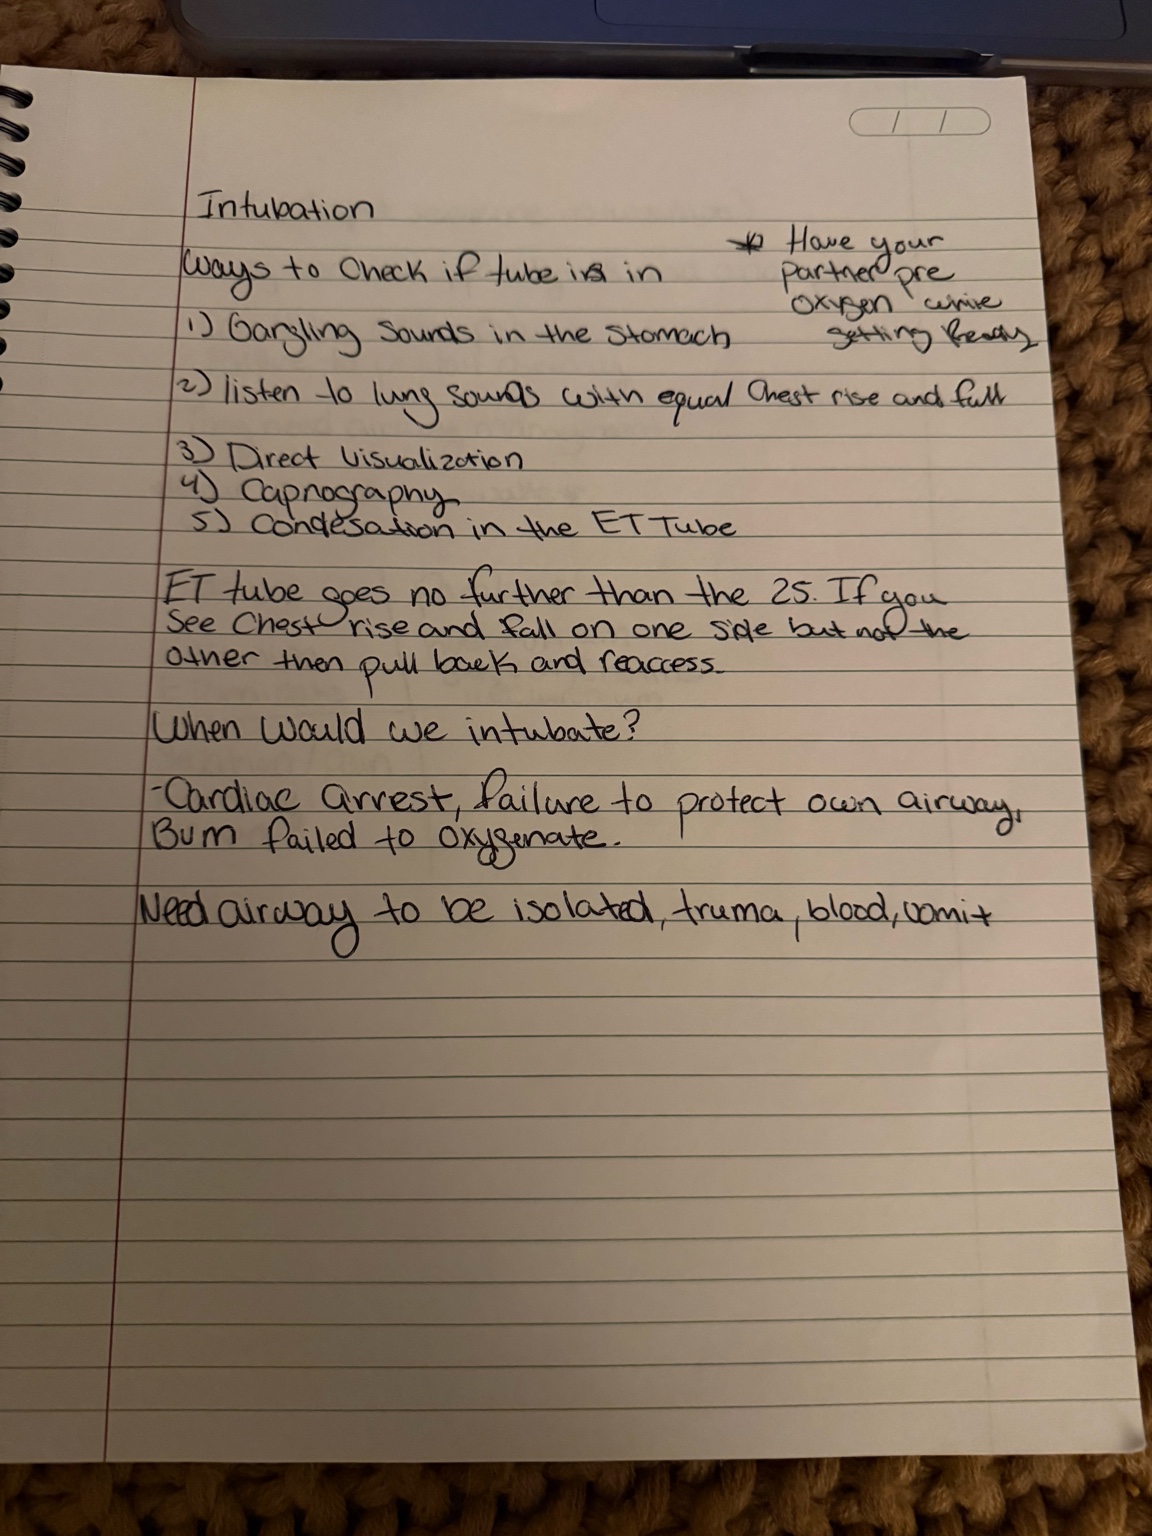 Intubation
* Have your
partner pre
oxygen while
getting Ready
Ways to Check if tube is in
1) Gargling Sounds in the Stomach
2) listen to lung sounds with equal Chest rise and fall
3) Direct Visualization
4) Capnography
5) Condesation in the ET Tube
ET tube goes no further than the 25. If you
See Chest rise and fall on one side but not the
other then pull back and reaccess.
When would we intubate?
-Cardiac arrest, failure to protect own airway,
BVM failed to oxygenate.
Need airway to be isolated, truma, blood, vomit